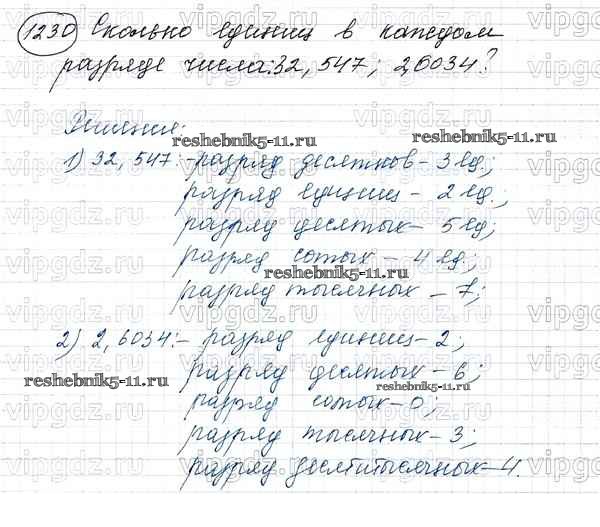 1230 Сколько единиц в каждом
разряде числа: 32,547; 2,6034?
Решение:
reshebnik5-11.ru
reshebnik5-11.ru
1) 32,547: - разряд десятков - 3 ед.;
разряд единиц - 2 ед.;
разряд десятых - 5 ед;
разряд сотых - 4 ед.;
reshebnik5-11.ru
разряд тысячных - 7;
2) 2,6034: - разряд единиц - 2;
reshebnik5-11.ru
разряд десятых - 6;
reshebnik5-11.ru
разряд сотых - 0;
разряд тысячных - 3;
разряд десятитысячных - 4.